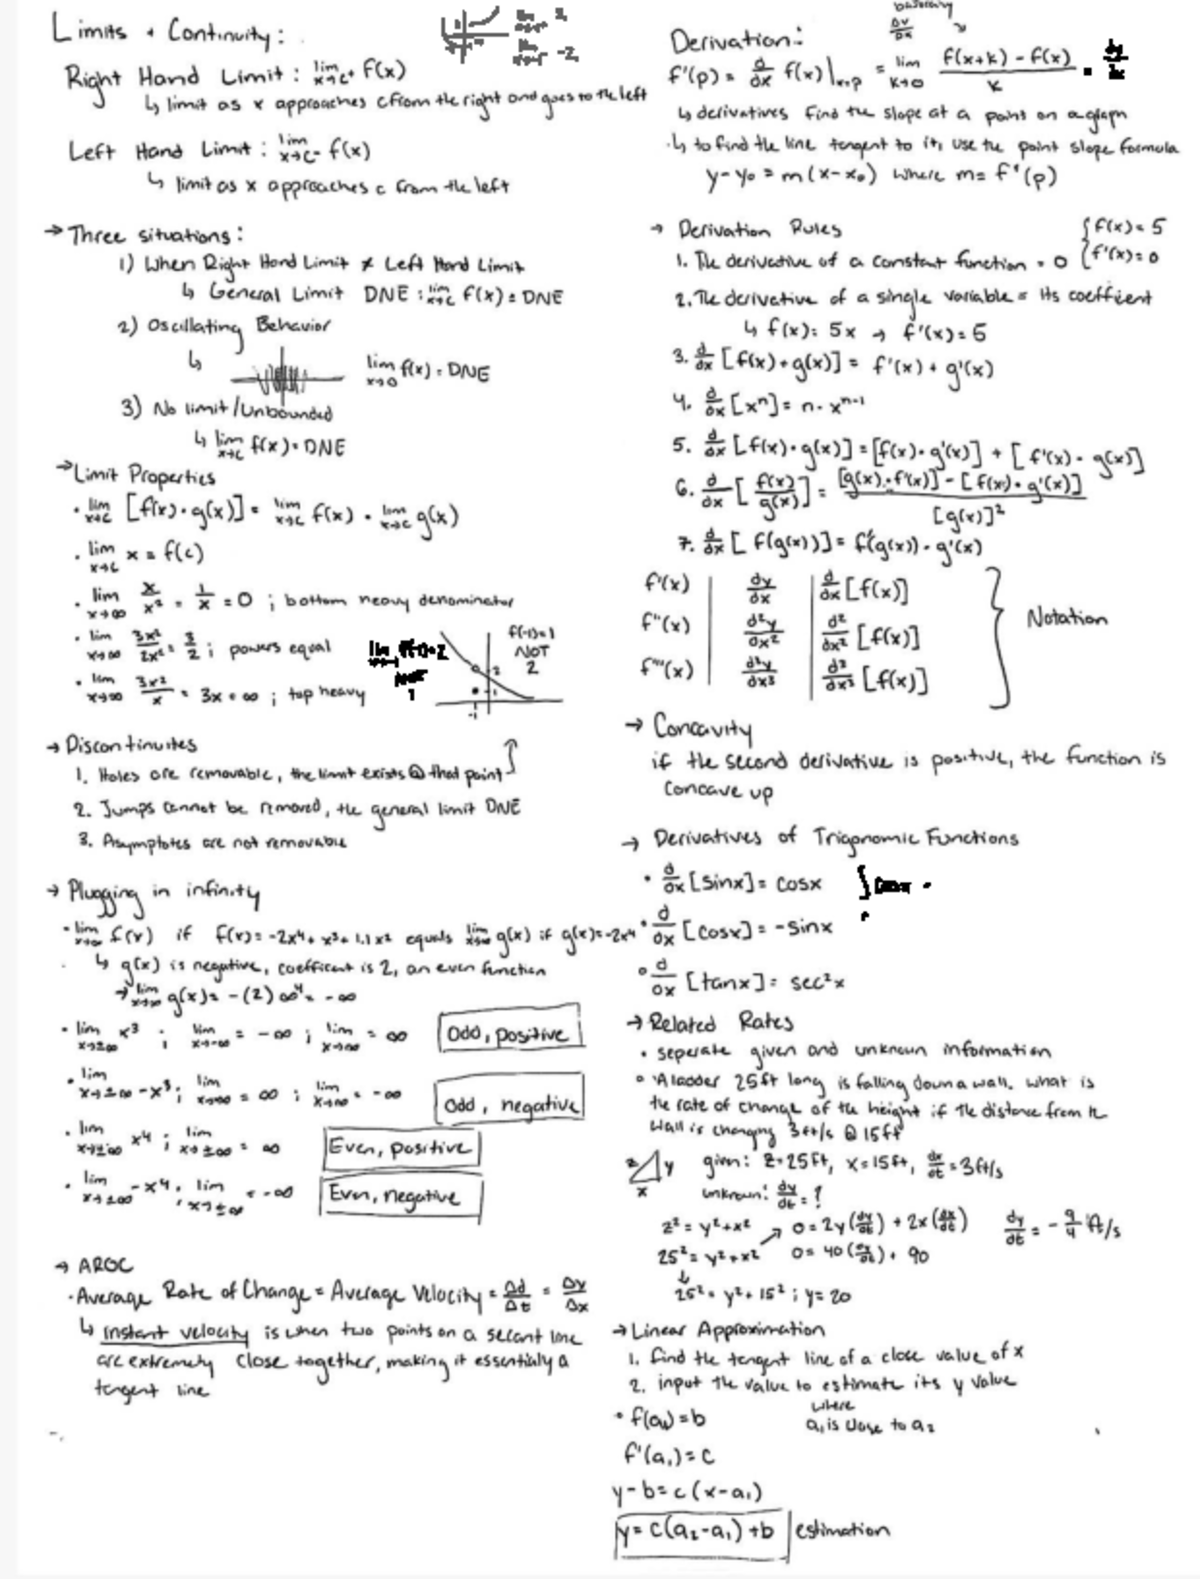 Limits + Continuity:
Right Hand Limit: lim x→c⁺ f(x)
↳ limit as x approaches c from the right and goes to the left
Left Hand Limit: lim x→c⁻ f(x)
↳ limit as x approaches c from the left
→ Three situations:
1) When Right Hand Limit ≠ Left Hand Limit
↳ General Limit DNE : lim x→c f(x) = DNE
2) Oscillating Behavior
↳ lim x→0 f(x) = DNE
3) No limit/Unbounded
↳ lim x→c f(x) = DNE
→ Limit Properties
· lim x→c [f(x)·g(x)] = lim x→c f(x) · lim x→c g(x)
· lim x→c x = f(c)
· lim x→∞ x/x² = 1/x = 0 ; bottom heavy denominator
· lim x→∞ 3x²/2x² = 3/2 ; powers equal
· lim x→∞ 3x²/x = 3x = ∞ ; top heavy
f(-1)=1
NOT
2
→ Discontinuites
1. Holes are removable, the limit exists @ that point
2. Jumps cannot be removed, the general limit DNE
3. Asymptotes are not removable
→ Plugging in infinity
· lim x→∞ f(x) if f(x) = -2x⁴ + x³ + 1.1x² equals lim x→∞ g(x) if g(x) = -2x⁴
↳ g(x) is negative, coefficent is 2, an even function
→ lim x→∞ g(x) = -(2)∞⁴ = -∞
· lim x→±∞ x³ ; lim x→-∞ = -∞ ; lim x→∞ = ∞ Odd, positive
· lim x→±∞ -x³ ; lim x→-∞ = ∞ ; lim x→∞ = -∞ Odd, negative
· lim x→±∞ x⁴ ; lim x→±∞ = ∞ Even, positive
· lim x→±∞ -x⁴ ; lim x→±∞ = -∞ Even, negative
→ AROC
· Average Rate of Change = Average Velocity = Δd/Δt = Δy/Δx
↳ instant velocity is when two points on a secant line
are extremely close together, making it essentialy a
tangent line
Derivation:
f'(p) = d/dx f(x)|x=p = lim k→0 f(x+k) - f(x) / k = dy/dx
↳ derivatives find the slope at a point on a graph
↳ to find the line tangent to it, use the point slope formula
y-y₀ = m(x-x₀) where m = f'(p)
→ Derivation Rules
1. The derivative of a constant function = 0 { f(x) = 5
f'(x) = 0
2. The derivative of a single variable = its coeffient
↳ f(x) = 5x → f'(x) = 5
3. d/dx [f(x)+g(x)] = f'(x) + g'(x)
4. d/dx [xⁿ] = n·xⁿ⁻¹
5. d/dx [f(x)·g(x)] = [f(x)·g'(x)] + [f'(x)·g(x)]
6. d/dx [f(x)/g(x)] = [g(x)·f'(x)] - [f(x)·g'(x)] / [g(x)]²
7. d/dx [f(g(x))] = f'(g(x))·g'(x)
f'(x) | dy/dx | d/dx [f(x)]
f''(x) | d²y/dx² | d²/dx² [f(x)] } Notation
f'''(x) | d³y/dx³ | d³/dx³ [f(x)]
→ Concavity
if the second derivative is positive, the function is
concave up
→ Derivatives of Trigonomic Functions
· d/dx [sinx] = cosx
· d/dx [cosx] = -sinx
· d/dx [tanx] = sec²x
→ Related Rates
· seperate given and unknown information
· A ladder 25ft long is falling down a wall. what is
the rate of change of the height if the distance from the
wall is changing 3ft/s @ 15ft
z y x
given: z=25ft, x=15ft, dx/dt = 3ft/s
unknown: dy/dt = ?
z² = y²+x² → 0 = 2y(dy/dt) + 2x(dx/dt) dy/dt = -9/4 ft/s
25² = y²+x² 0 = 40(dy/dt) + 90
↓
25² = y² + 15² ; y = 20
→ Linear Approximation
1. find the tangent line of a close value of x
2. input the value to estimate its y value
· f(a₁) = b where
a₁ is close to a₂
f'(a₁) = c
y-b = c(x-a₁)
y = c(a₂-a₁)+b estimation